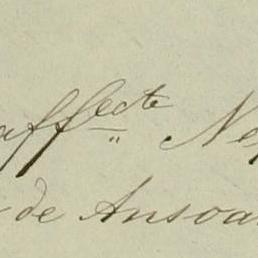 affecte Ne
de Ansoa